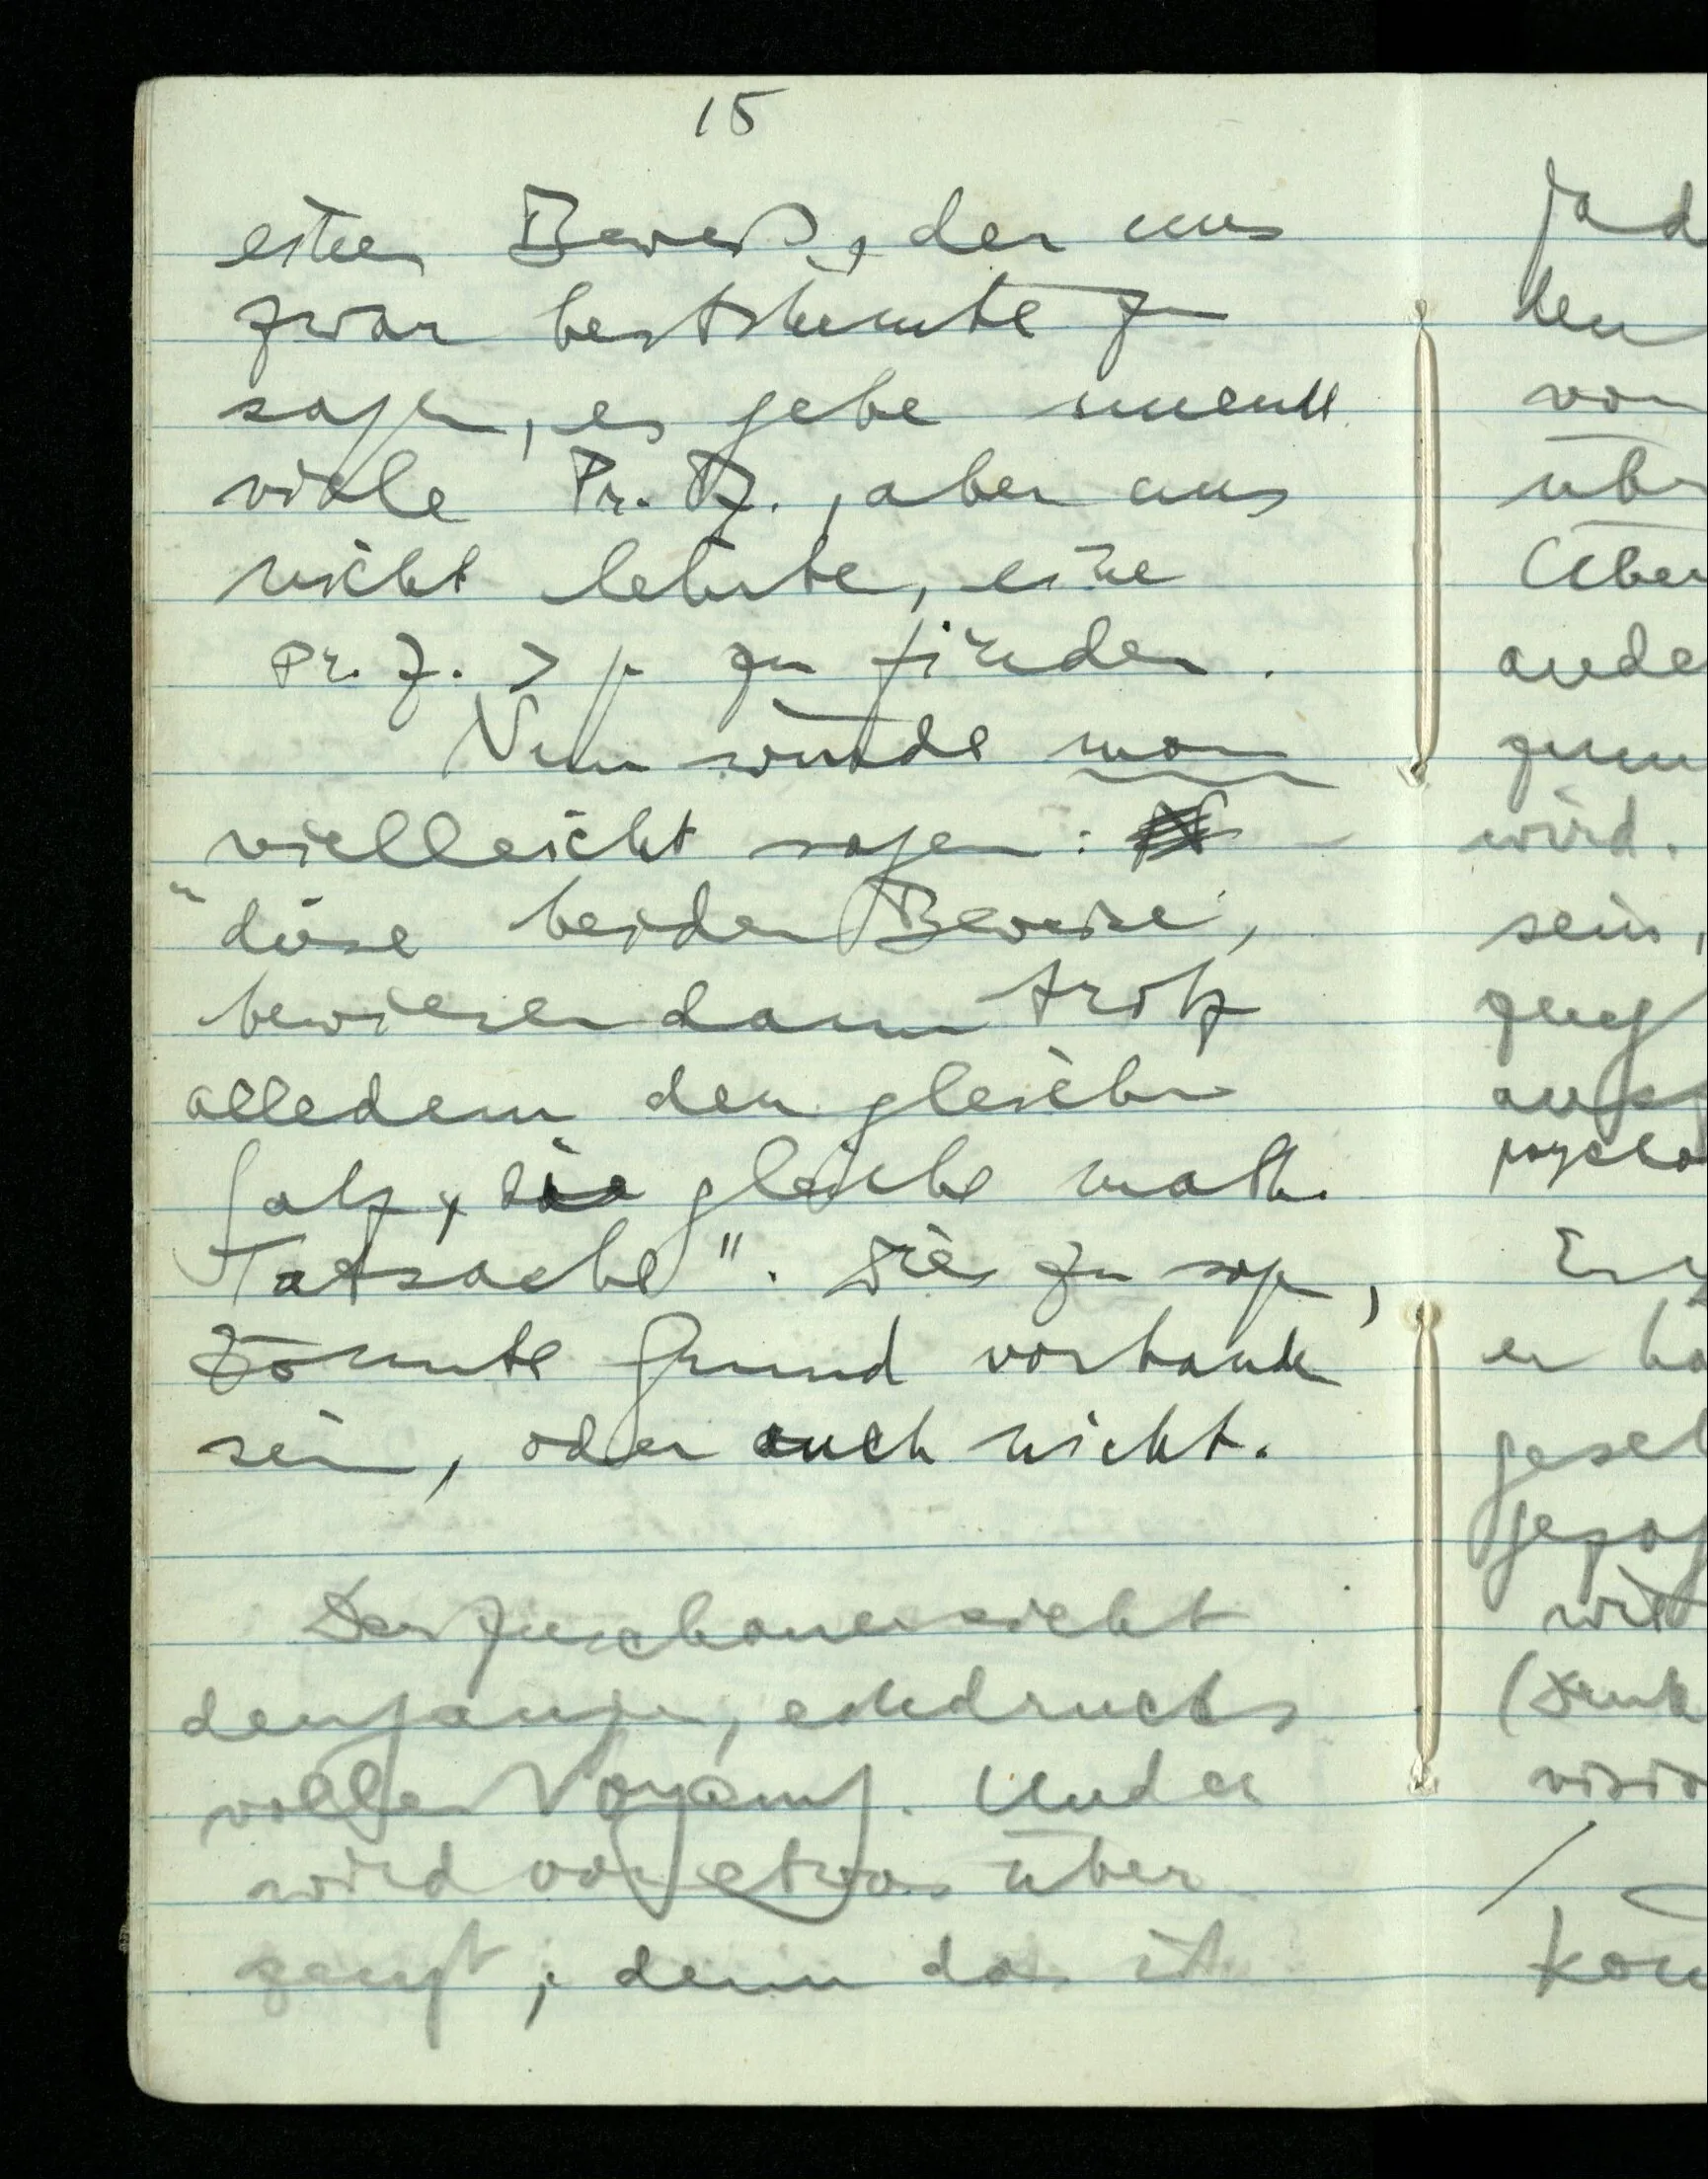 15
einen Beweis, der uns
zwar bestimmte zu
sagen, es gebe unendl.
viele Pr. Z., aber uns
nicht lehrte, eine
Pr. Z. > p zu finden.
Nun würde man
vielleicht sagen:
"diese beiden Beweise,
bewiesen dann trotz
alledem den gleichen
Satz, die gleiche math.
Tatsache". Dies zu sagen,
könnte Grund vorhanden
sein, oder auch nicht.
Der Zuschauer sieht
den ganzen, eindrucks
vollen Vorgang. Und er
wird von etwas über
zeugt; denn das ist
ja d
den
von
über
Über
ande
wird.
sein,
zeug
psycho
er ha
gesel
wird
visio
kon